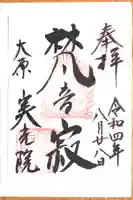 奉拝
令和四年
八月廿八日
梵音寂
大原
実光院